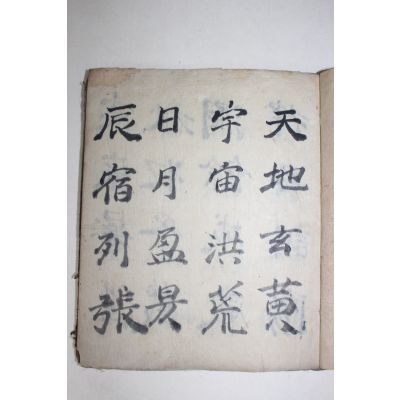 天地玄黃
宇宙洪荒
日月盈昃
辰宿列張